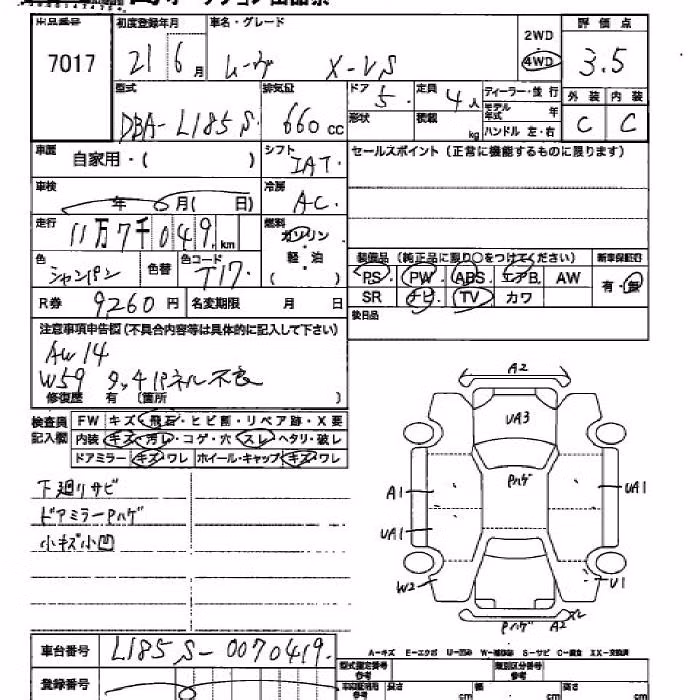 出品番号
7017
初度登録年月
21 6月
車名・グレード
ムーヴ X-VS
2WD
4WD
評価点
3.5
型式
DBA-L185S
排気量
660cc
ドア
5
定員
4人
形状
積載
kg
ディーラー・並行
モデル年式
年
ハンドル 左・右
外装 内装
C C
車歴
自家用・( )
シフト
IAT
セールスポイント (正常に機能するものに限ります)
車検
年 6月( 日)
冷房
AC
走行
11万7千049km
燃料
ガソリン
軽・油
( )
色
シャンパン
色替
色コード
T17
装備品 (純正品に限り○をつけてください)
新車保証書
PS PW ABS エアB AW
有・無
SR ナビ TV カワ
R券
9260円
名変期限 月 日
後日品
注意事項申告欄(不具合内容等は具体的に記入して下さい)
AW14
W59 タッチパネル不良
修復歴 有 (箇所 )
検査員記入欄
FW キズ・飛石・ヒビ割・リペア跡・X要
内装 キズ・汚レ・コゲ・穴・スレ・ヘタリ・破レ
ドアミラー キズ・ワレ ホイール・キャップ キズ・ワレ
下廻りサビ
ドアミラーPハゲ
小キズ小凹
A2
UA3
Pハゲ
A1
UA1
UA1
W2
U1
Pハゲ A2
X2
車台番号
L185S-0070419
A-キズ E-エクボ U-凹み W-補修跡 S-サビ C-腐食 XX-交換済
登録番号
型式指定番号
参考
類別区分番号
参考
長さ
cm
幅
cm
高さ
cm